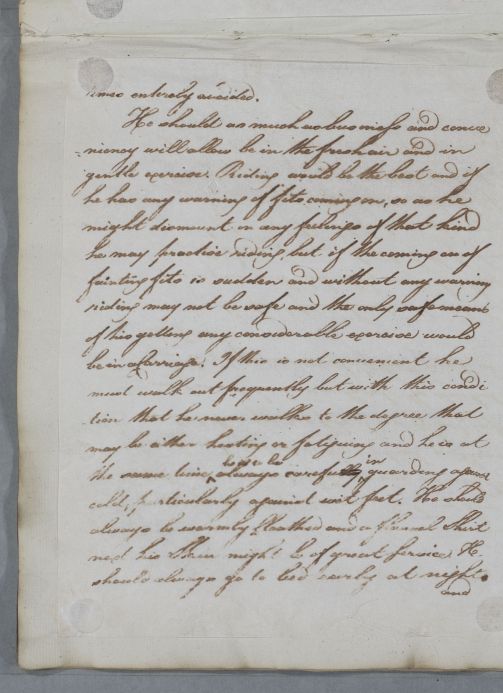 times entirely avoided.
He should as much as business and conve
niency will allow be in the fresh air and in
gentle exercise. Riding would be the best and if
he has any warning of fits coming on, so as he
might dismount on any feelings of that kind
he may practise riding, but if the coming on of
fainting fits is sudden and without any warning
riding may not be safe and the only safe means
of his getting any considerable exercise would
be in a Carriage. If this is not convenient he
must walk out frequently but with this condi
tion that he never walks to the degree that
may be either heating or fatiguing and he is at
the same time, always careful in guarding against
cold, particularly against wet feet. He should
always be warmly Cloathed and a flannel Shirt
next his Skin might be of great Service. He
should always go to bed early at night.
and